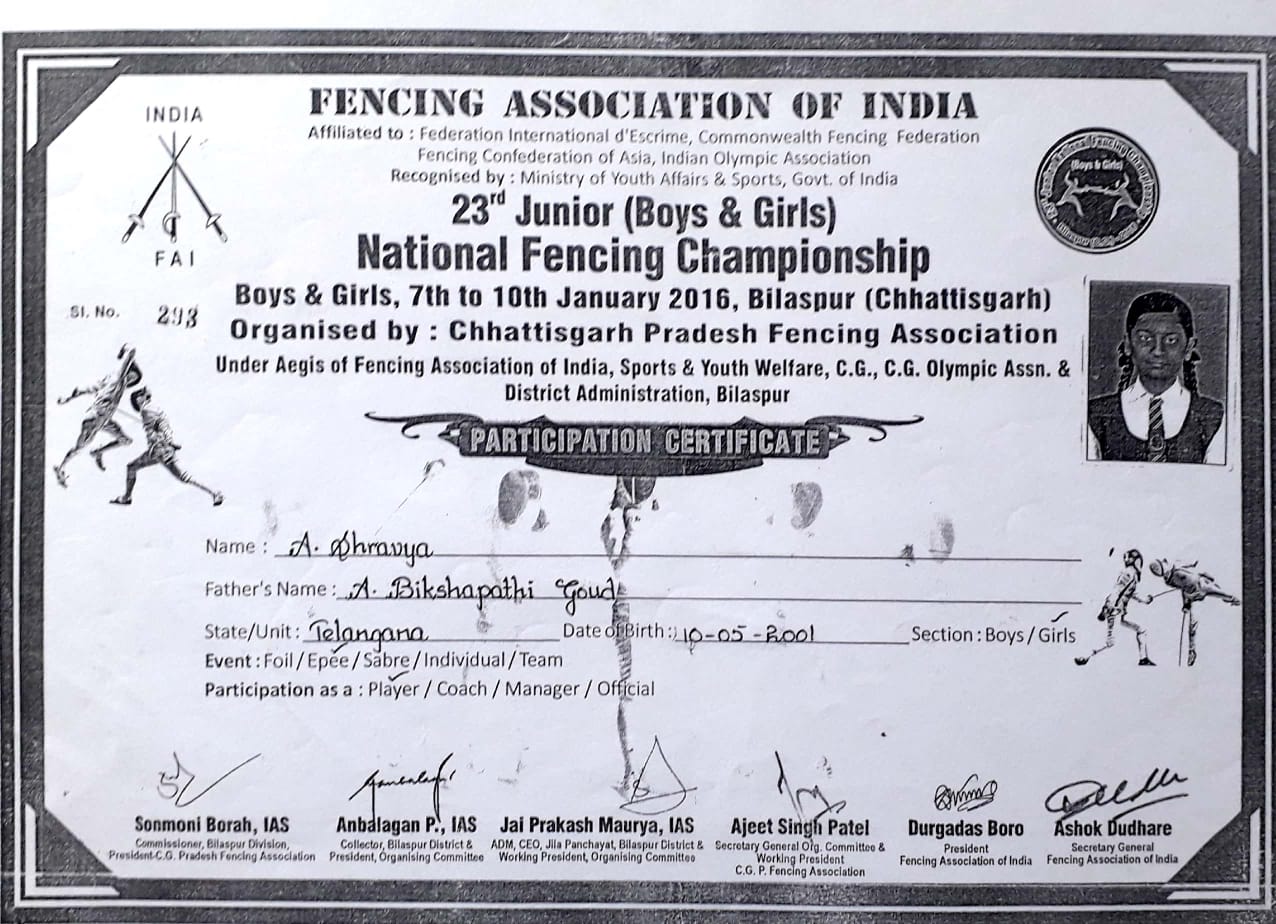 INDIA
FAI
FENCING ASSOCIATION OF INDIA
Affiliated to : Federation International d'Escrime, Commonwealth Fencing Federation
Fencing Confederation of Asia, Indian Olympic Association
Recognised by : Ministry of Youth Affairs & Sports, Govt. of India
23rd Junior (Boys & Girls)
National Fencing Championship
(Boys & Girls)
Boys & Girls, 7th to 10th January 2016, Bilaspur (Chhattisgarh)
Sl. No. 293
Organised by : Chhattisgarh Pradesh Fencing Association
Under Aegis of Fencing Association of India, Sports & Youth Welfare, C.G., C.G. Olympic Assn. &
District Administration, Bilaspur
PARTICIPATION CERTIFICATE
Name : A. Shravya
Father's Name : A. Bikshapathi Goud
State/Unit : Telangana Date of Birth : 10-05-2001 Section : Boys / Girls
Event : Foil / Epée / Sabre / Individual / Team
Participation as a : Player / Coach / Manager / Official
Sonmoni Borah, IAS
Commissioner, Bilaspur Division,
President-C.G. Pradesh Fencing Association
Anbalagan P., IAS
Collector, Bilaspur District &
President, Organising Committee
Jai Prakash Maurya, IAS
ADM, CEO, Jila Panchayat, Bilaspur District &
Working President, Organising Committee
Ajeet Singh Patel
Secretary General Org. Committee &
Working President
C.G. P. Fencing Association
Durgadas Boro
President
Fencing Association of India
Ashok Dudhare
Secretary General
Fencing Association of India